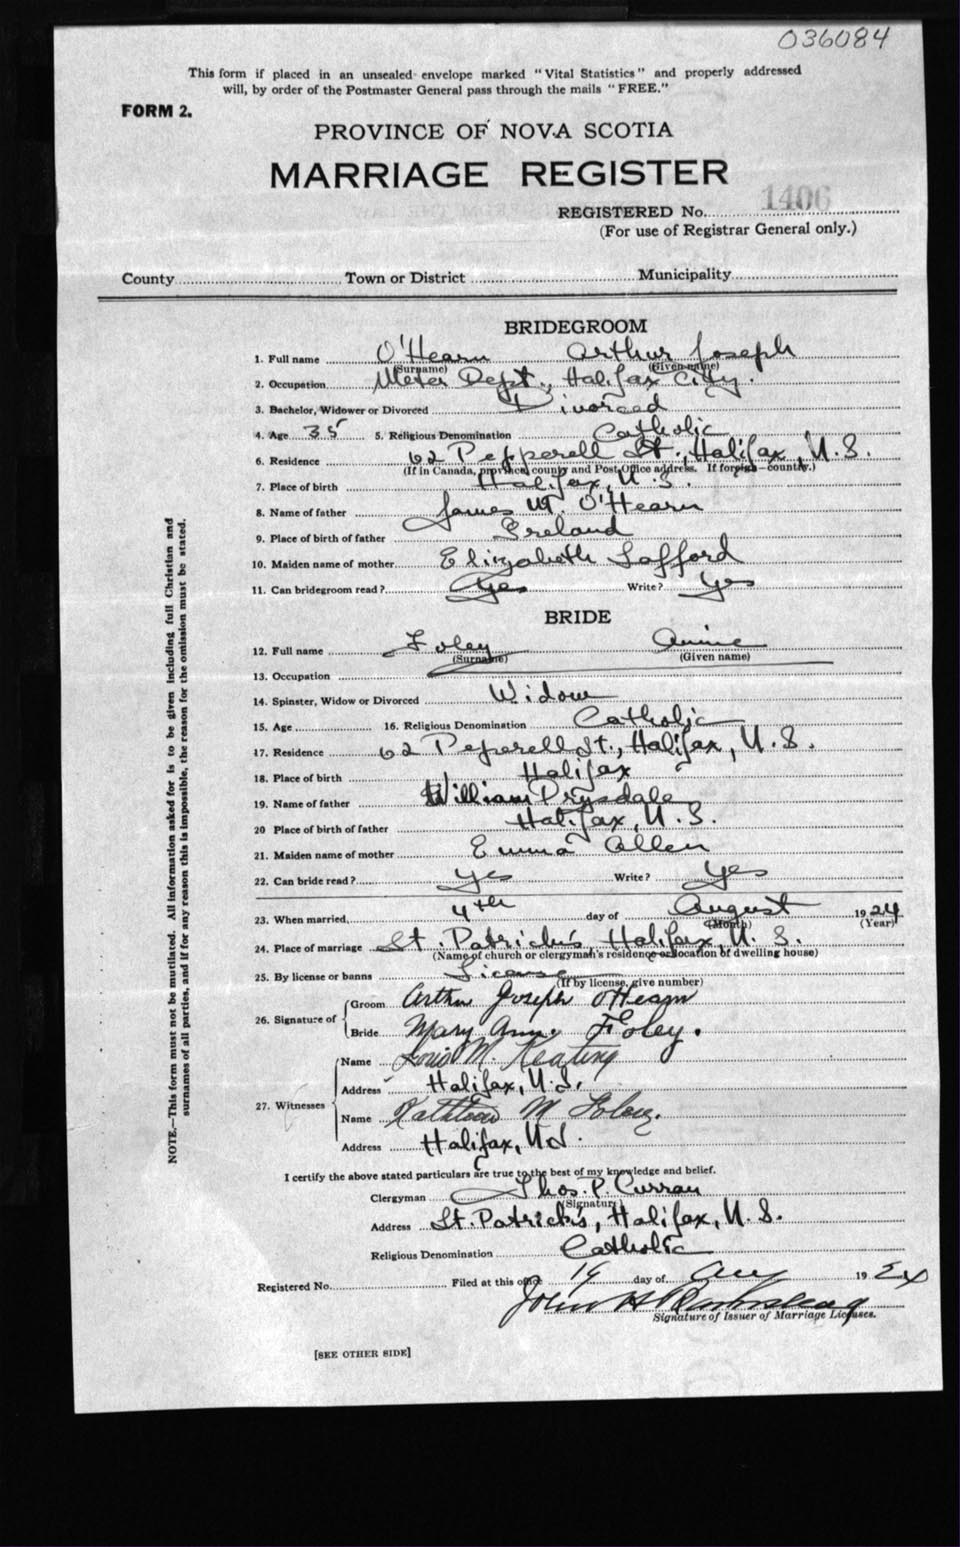 036084
This form if placed in an unsealed envelope marked "Vital Statistics" and properly addressed
will, by order of the Postmaster General pass through the mails "FREE."
FORM 2.
PROVINCE OF NOVA SCOTIA
MARRIAGE REGISTER
REGISTERED No. 1406
(For use of Registrar General only.)
County Town or District Municipality
BRIDEGROOM
1. Full name O'Hearn Arthur Joseph
(Surname) (Given name)
2. Occupation Meter Dept., Halifax City.
3. Bachelor, Widower or Divorced Divorced
4. Age 35 5. Religious Denomination Catholic
6. Residence 62 Pepperell St., Halifax, N.S.
(If in Canada, province, county and Post Office address. If foreign—country.)
7. Place of birth Halifax, N.S.
8. Name of father James W. O'Hearn
9. Place of birth of father Ireland
10. Maiden name of mother Elizabeth Safford
11. Can bridegroom read? Yes Write? Yes
BRIDE
12. Full name Foley Annie
(Surname) (Given name)
13. Occupation
14. Spinster, Widow or Divorced Widow
15. Age 16. Religious Denomination Catholic
17. Residence 62 Peperell St., Halifax, N.S.
18. Place of birth Halifax
19. Name of father William Drysdale
20 Place of birth of father Halifax, N.S.
21. Maiden name of mother Emma Allen
22. Can bride read? Yes Write? Yes
23. When married, 4th day of August 1924
(Month) (Year)
24. Place of marriage St. Patrick's, Halifax, N.S.
(Name of church or clergyman's residence or location of dwelling house)
25. By license or banns License
(If by license, give number)
26. Signature of Groom Arthur Joseph O'Hearn
Bride Mary Anne Foley.
27. Witnesses Name Louis M. Keating
Address Halifax, N.S.
Name Kathleen M Foley.
Address Halifax, NS.
I certify the above stated particulars are true to the best of my knowledge and belief.
Clergyman Thos. P. Curran
(Signature)
Address St. Patrick's, Halifax, N.S.
Religious Denomination Catholic
Registered No. Filed at this office 19 day of Aug 1924
John H
Signature of Issuer of Marriage Licenses.
[SEE OTHER SIDE]
NOTE.—This form must not be mutilated. All information asked for is to be given including full Christian and
surnames of all parties, and if for any reason this is impossible, the reason for the omission must be stated.